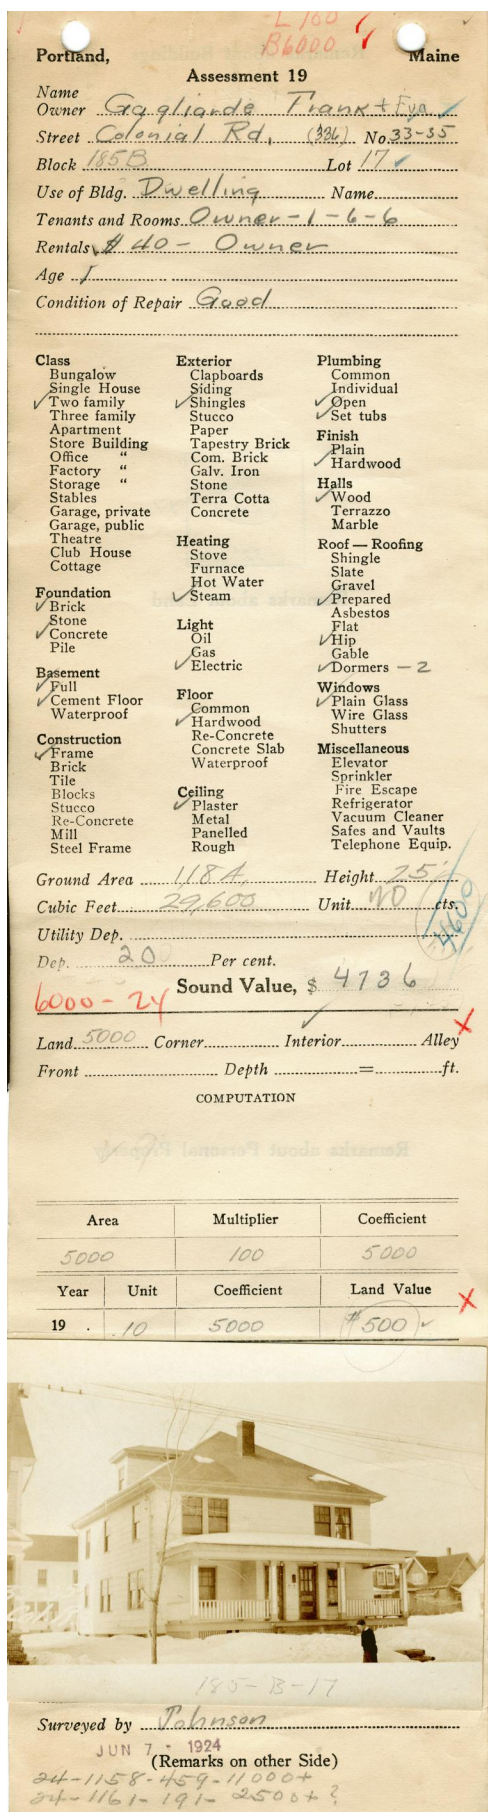 L 100
B6000
Portland, Maine
Assessment 19
Name
Owner Gagliarde Frank + Eva
Street Colonial Rd. (336) No 33-35
Block 185B Lot 17
Use of Bldg. Dwelling Name
Tenants and Rooms Owner-1-6-6
Rentals $40- Owner
Age 1
Condition of Repair Good
Class
Bungalow
Single House
✓ Two family
Three family
Apartment
Store Building
Office "
Factory "
Storage "
Stables
Garage, private
Garage, public
Theatre
Club House
Cottage
Foundation
✓ Brick
Stone
✓ Concrete
Pile
Basement
✓ Full
✓ Cement Floor
Waterproof
Construction
✓ Frame
Brick
Tile
Blocks
Stucco
Re-Concrete
Mill
Steel Frame
Exterior
Clapboards
Siding
✓ Shingles
Stucco
Paper
Tapestry Brick
Com. Brick
Galv. Iron
Stone
Terra Cotta
Concrete
Heating
Stove
Furnace
Hot Water
✓ Steam
Light
Oil
Gas
✓ Electric
Floor
Common
✓ Hardwood
Re-Concrete
Concrete Slab
Waterproof
Ceiling
✓ Plaster
Metal
Panelled
Rough
Plumbing
Common
Individual
✓ Open
✓ Set tubs
Finish
Plain
✓ Hardwood
Halls
✓ Wood
Terrazzo
Marble
Roof — Roofing
Shingle
Slate
Gravel
✓ Prepared
Asbestos
Flat
✓ Hip
Gable
✓ Dormers - 2
Windows
✓ Plain Glass
Wire Glass
Shutters
Miscellaneous
Elevator
Sprinkler
Fire Escape
Refrigerator
Vacuum Cleaner
Safes and Vaults
Telephone Equip.
Ground Area 1184 Height 25
Cubic Feet 29,600 Unit cts.
4600
Utility Dep.
Dep. 20 Per cent.
Sound Value, $ 4736
6000 - 24
Land 5000 Corner Interior Alley
Front Depth = ft.
COMPUTATION
Area Multiplier Coefficient
5000 100 5000
Year Unit Coefficient Land Value
19 . .10 5000 $500 ✓
185-B-17
Surveyed by Johnson
JUN 7 - 1924
(Remarks on other Side)
24-1158-459-11000+
24-1161-191-2500+?